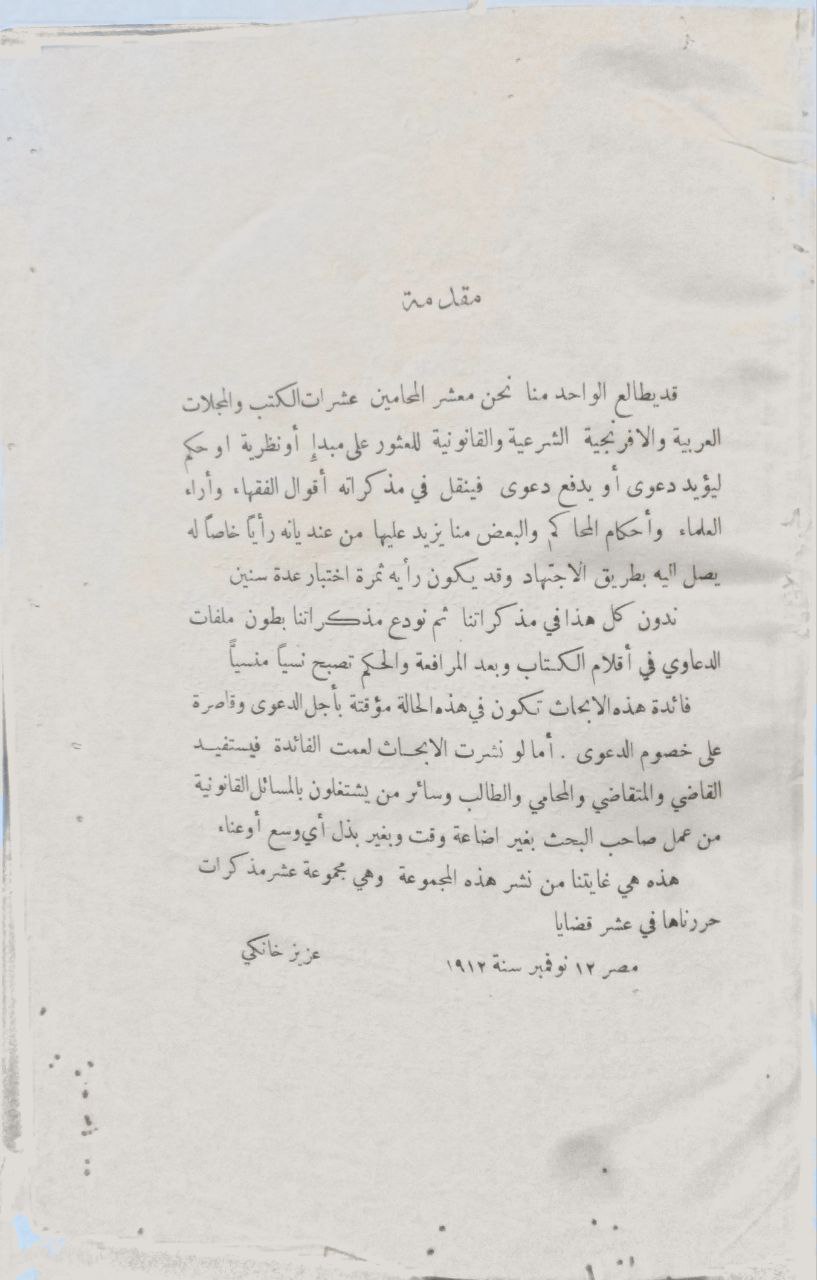 مقدمة
قد يطالع الواحد منا نحن معشر المحامين عشرات الكتب والمجلات
العربية والافرنجية الشرعية والقانونية للعثور على مبدإ أو نظرية او حكم
ليؤيد دعوى أو يدفع دعوى فينقل في مذكراته أقوال الفقهاء وأراء
العلماء وأحكام المحاكم والبعض منا يزيد عليها من عندياته رأياً خاصاً له
يصل اليه بطريق الاجتهاد وقد يكون رأيه ثمرة اختبار عدة سنين
ندون كل هذا في مذكراتنا ثم نودع مذكراتنا بطون ملفات
الدعاوي في أقلام الكتاب وبعد المرافعة والحكم تصبح نسياً منسياً
فائدة هذه الابحاث تكون في هذه الحالة مؤقتة بأجل الدعوى وقاصرة
على خصوم الدعوى . أما لو نشرت الابحاث لعمت الفائدة فيستفيد
القاضي والمتقاضي والمحامي والطالب وسائر من يشتغلون بالمسائل القانونية
من عمل صاحب البحث بغير اضاعة وقت وبغير بذل أي وسع أو عناء
هذه هي غايتنا من نشر هذه المجموعة وهي مجموعة عشر مذكرات
حررناها في عشر قضايا
مصر ١٢ نوفمبر سنة ١٩١٢ عزيز خانكي